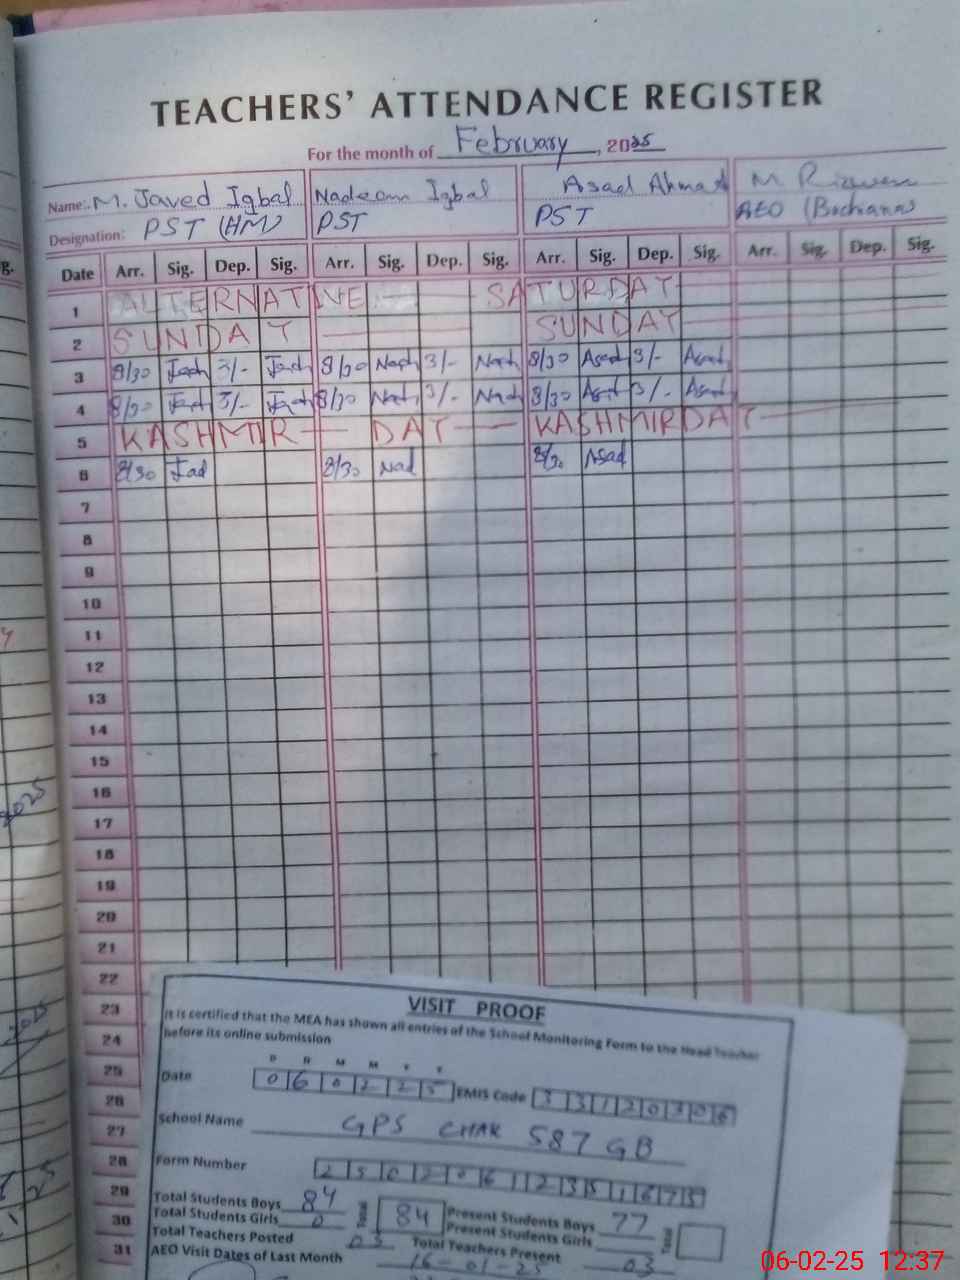 TEACHERS' ATTENDANCE REGISTER
For the month of February, 2025
Name: M. Javed Iqbal Nadeem Iqbal Asad Ahmad M Rizwan
Designation: PST (HM) PST PST AEO
Date Arr. Sig. Dep. Sig. Arr. Sig. Dep. Sig. Arr. Sig. Dep. Sig. Arr. Sig. Dep. Sig.
1 ALTERNATIVE SATURDAY
2 SUNDAY SUNDAY
3 8/30 3/- 8/30 3/- 8/30 Asad 3/- Asad
4 8/30 3/- 8/30 3/- 8/30 Asad 3/- Asad
5 KASHMIR DAY KASHMIR DAY
6 8/30 8/30 Nad 8/30 Asad
7
8
9
10
11
12
13
14
15
16
17
18
19
20
21
22
23
24
25
26
27
28
29
30
31
VISIT PROOF
It is certified that the MEA has shown all entries of the School Monitoring Form to the Head Teacher
before its online submission
D D M M Y Y
Date 060225 EMIS Code 33120306
School Name GPS CHAK 587 GB
Form Number
Total Students Boys 84 Total 84 Present Students Boys 77 Total
Total Students Girls 0 Present Students Girls
Total Teachers Posted 03 Total Teachers Present 03
AEO Visit Dates of Last Month 16-01-25
06-02-25 12:37